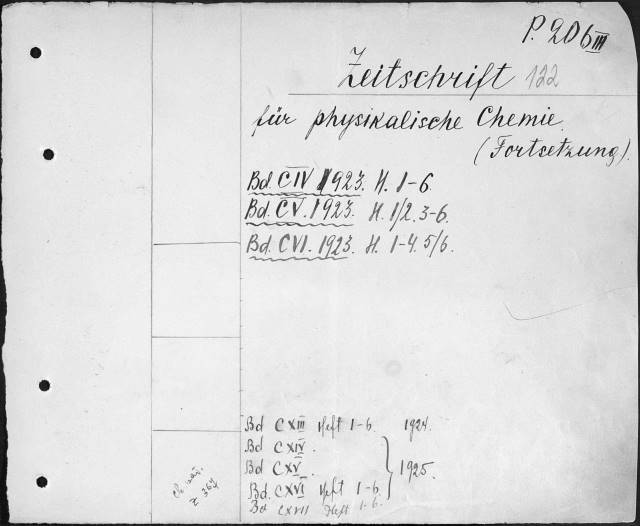 P. 206III
Zeitschrift 122
für physikalische Chemie.
(Fortsetzung).
Bd. CIV 1923. H. 1-6.
Bd. CV. 1923. H. 1/2. 3-6.
Bd. CVI. 1923. H. 1-4. 5/6.
Bd CXIII Heft 1-6. 1924.
Bd CXIV.
Bd CXV. 1925.
Bd. CXVI Heft 1-6
Bd CXVII Heft 1-6.